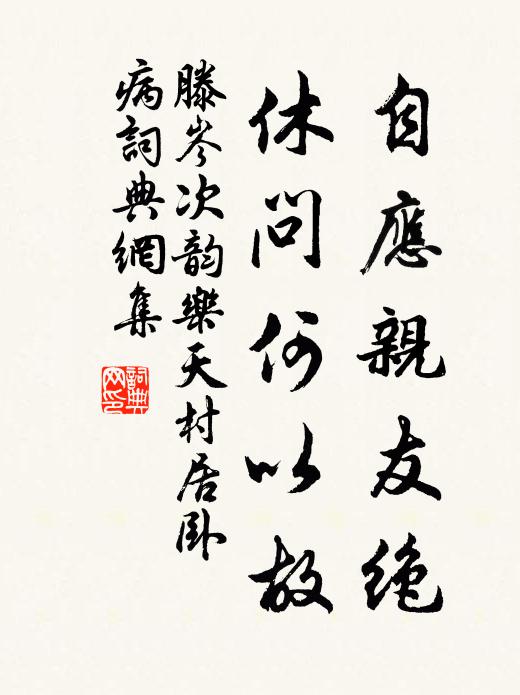 自應親友絶
休問何以故
滕岑次韵樂天村居卧
病詞典網集
詞典
网印